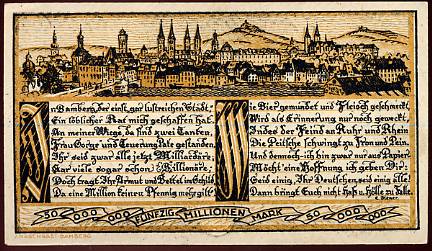 In Bamberg der einst gar lustreichen Stadt,
Ein löblicher Rat mich geschaffen hat.
An meiner Wiege, da sind zwei Tanten,
Frau Sorge und Teuerung Pate gestanden.
Ihr seid zwar alle jetzt Milliardäre,
Gar viele sogar schon Billionäre,
Doch tragt Ihr Armut und Bettel im Schild,
Da eine Million keinen Pfennig mehr gilt.
Wie Bier gemundet und Fleisch geschmeckt,
Wird als Erinnerung nur noch geweckt,
Indes der Feind an Ruhr und Rhein
Die Peitsche schwingt zu Fron und Pein.
Und dennoch - ich bin zwar nur aus Papier -
Möcht eine Hoffnung ich geben Dir:
Seid einig, Ihr Deutschen, seid einig alle!
Dann bringt Euch nicht Haß u. Hölle zu Falle.
50 000 000 FÜNFZIG MILLIONEN MARK 50 000 000
BAMBERG